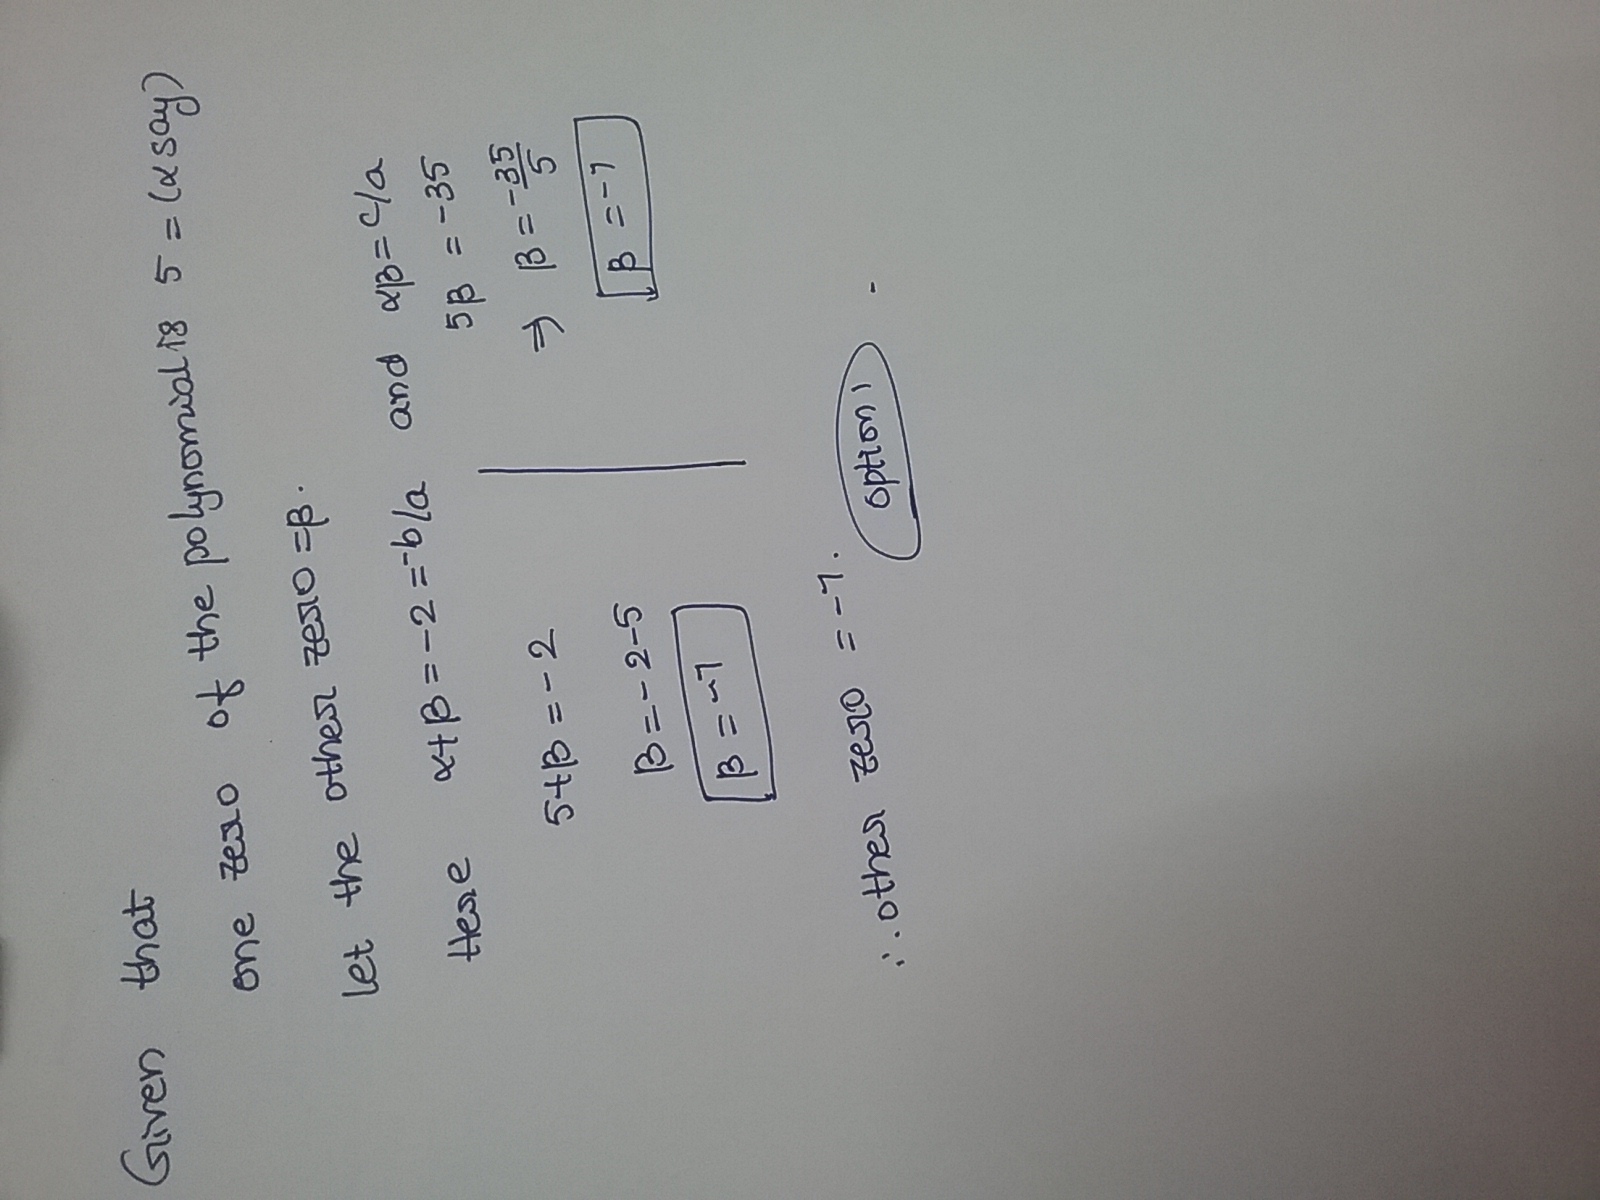 Given that
one zero of the polynomial is 5 = (α say)
let the other zero = β.
Here α+β = -2 = -b/a and αβ = c/a
5+β = -2
β = -2-5
β = -7
5β = -35
⇒ β = -35/5
β = -7
∴ other zero = -7. option 1